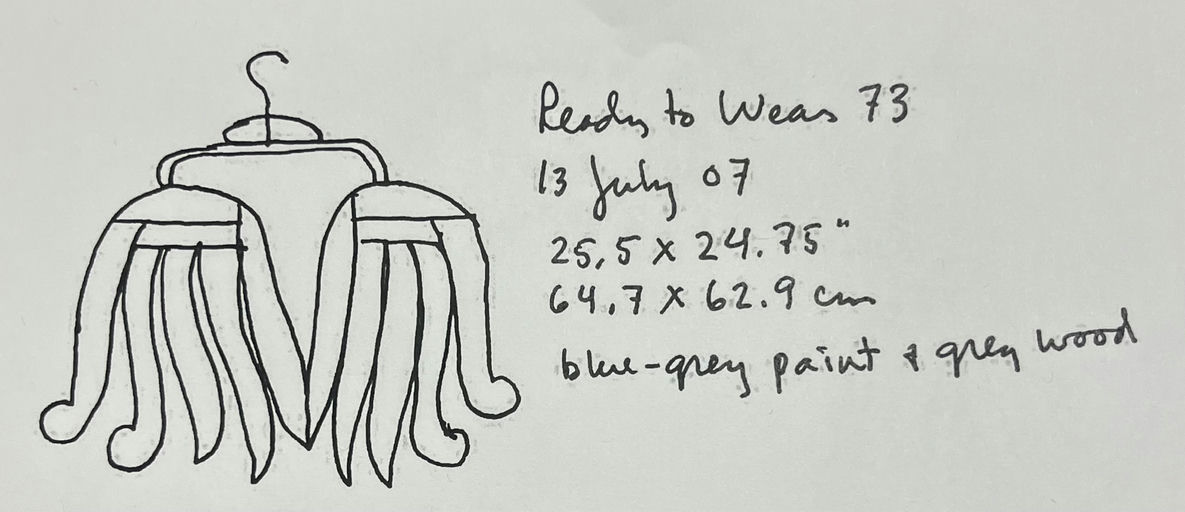 Ready to Wear 73
13 July 07
25.5 x 24.75"
64.7 x 62.9 cm
blue-grey paint & grey wood